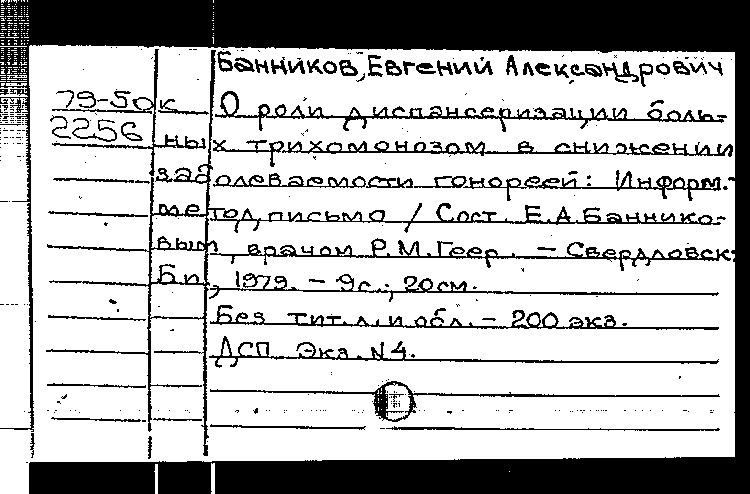 Банников, Евгений Александрович
79-50к О роли диспансеризации боль-
2256 ных трихомонозом в снижении
заболеваемости гонореей: Информ.-
метод. письмо / Сост. Е.А.Баннико-
вым, врачом Р.М.Геер. — Свердловск:
Б.и., 1979. - 9с.; 20см.
Без тит.л. и обл. - 200 экз.
ДСП Экз. N4.